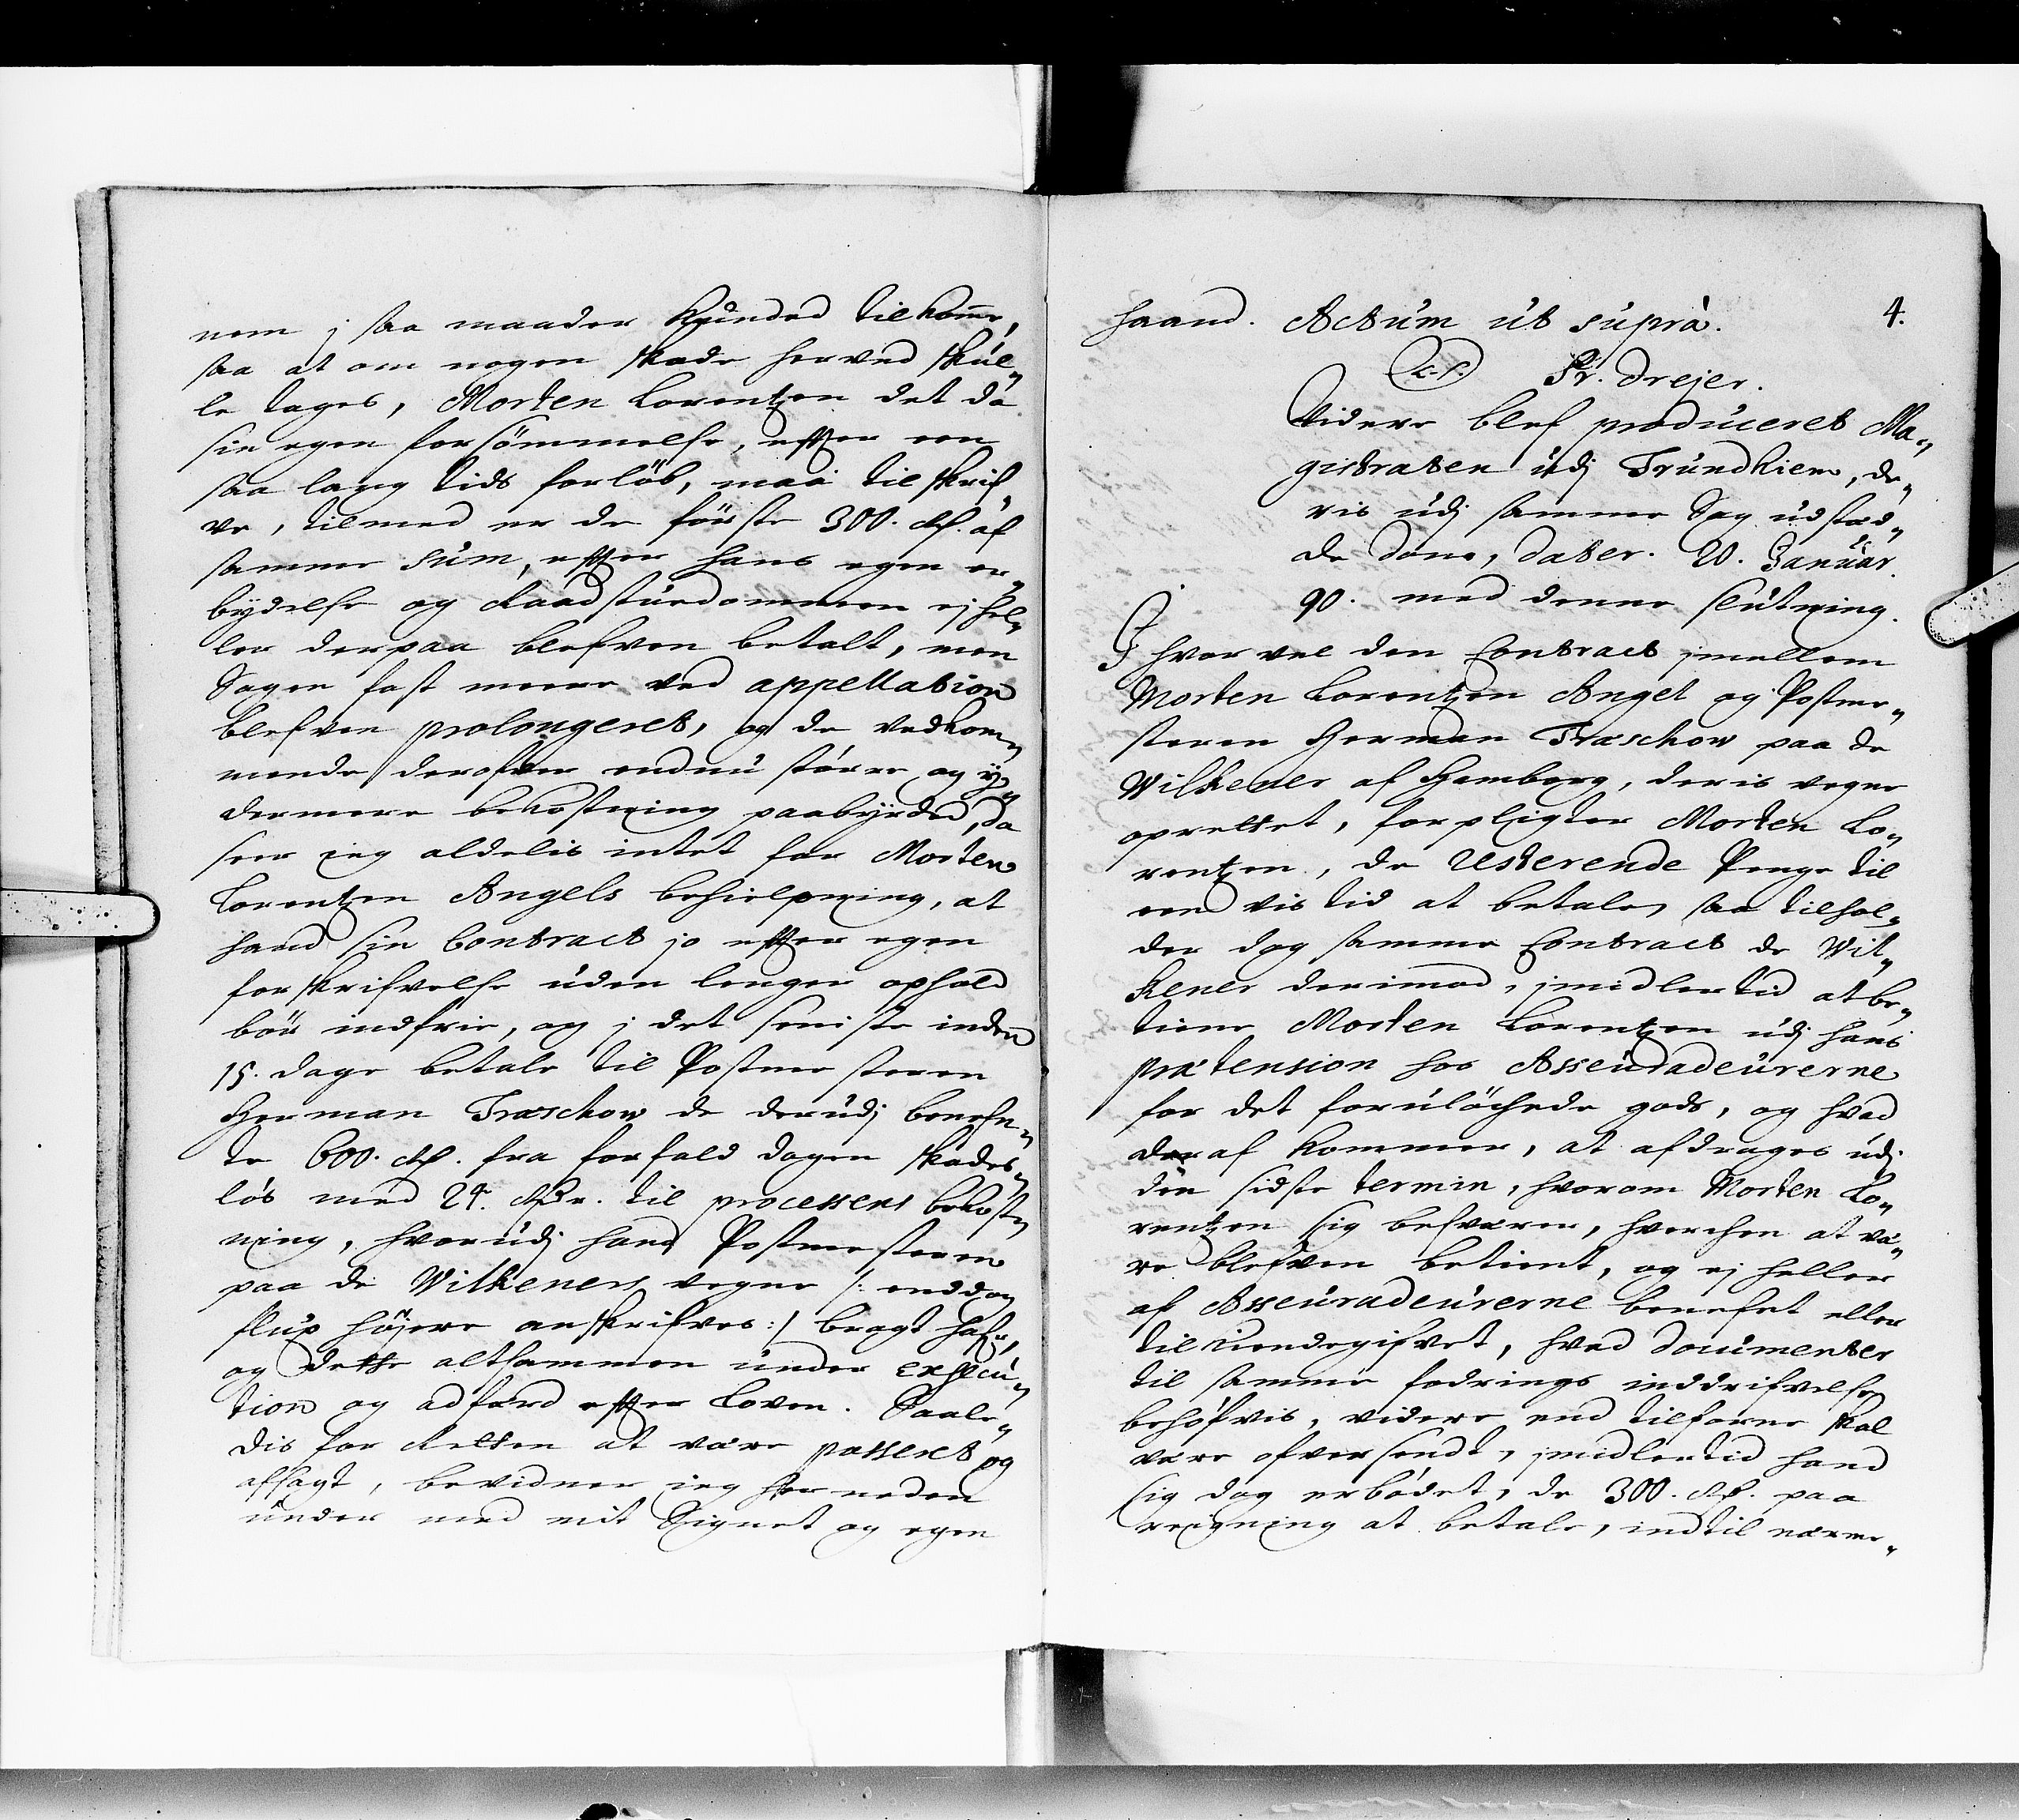 nem j saa maader kunded tilkome,
saa at om nogen skade herved skul„
le tages, Morten Lorentzen det da
sin egen forsömmelse, efter een
saa lang tids forlöb, maa tilskrif„
ve, tilmed er de förste 300. Rd. af
samme sum, efter hans egen er„
bydelse og Raadstuedommen ej hel„
ler derpaa blefven betalt, men
Sagen fast meere ved appellation
blefven prolongeret, og de vedkom„
mende derofver endnu större og y„
dermere bekostning paabyrded, da
seer jeg aldelis intet for Morten
Lorentzen Angels behielpning, at
hand sin Contract jo efter egen
forskrifvelse uden lenger ophold
bör indfrie, og j det seniste inden
15. dage betale til Postmesteren
Herman Træschow de derudj benefn„
te 600. Rd. fra forfald dagen skades„
lös med 24. Rdr. til processens bekost„
ning, hvorudj hand Postmesteren
paa de Wilkeners vegne /: enddog
slup höjere anskrifves :/ bragt hafr,
og dette altsammen under execu„
tion og adfærd efter Loven. Saale„
dis for Retten at være passeret og
afsagt, bevidner jeg her neden
under med mit Signet og egen
4.
haand. Actum ut supra.
L.S. Fr. Drejer.
Videre blef produceret Ma„
gistraten udj Trundhiem, de„
ris udj samme Sag udstæd„
de dom, dater. 20. Januar.
90. med denne slutning.
I hvor vel den Contract jmellem
Morten Lorentzen Angel og Postme„
steren Herman Træschow paa de
Wilkener af Hamborg, deris vegne
oprettet, forpligter Morten Lo„
rentzen, de resterende Penge til
een vis tid at betale, saa tilhol„
der dog samme Contract de Wil„
kener derimod, jmidlertid at be„
tiene Morten Lorentzen udj hans
prætension hos Asseuradeurerne
for det foruløchede gods, og hvad
deraf kommer, at afdrages udj
den sidste termin, hvorom Morten Lo„
rentzen sig besværer, hverchen at væ„
re blefven betient, og ej heller
af Asseuradeurerne benefnt eller
tilkiendegifvet, hvad documenter
til samme fodrings inddrifvelse
behöfvis, videre end tilforne skal
være ofversendt, jmidlertid hand
sig dog erbödet, de 300. Rd. paa
regning at betale, indtil nærme„